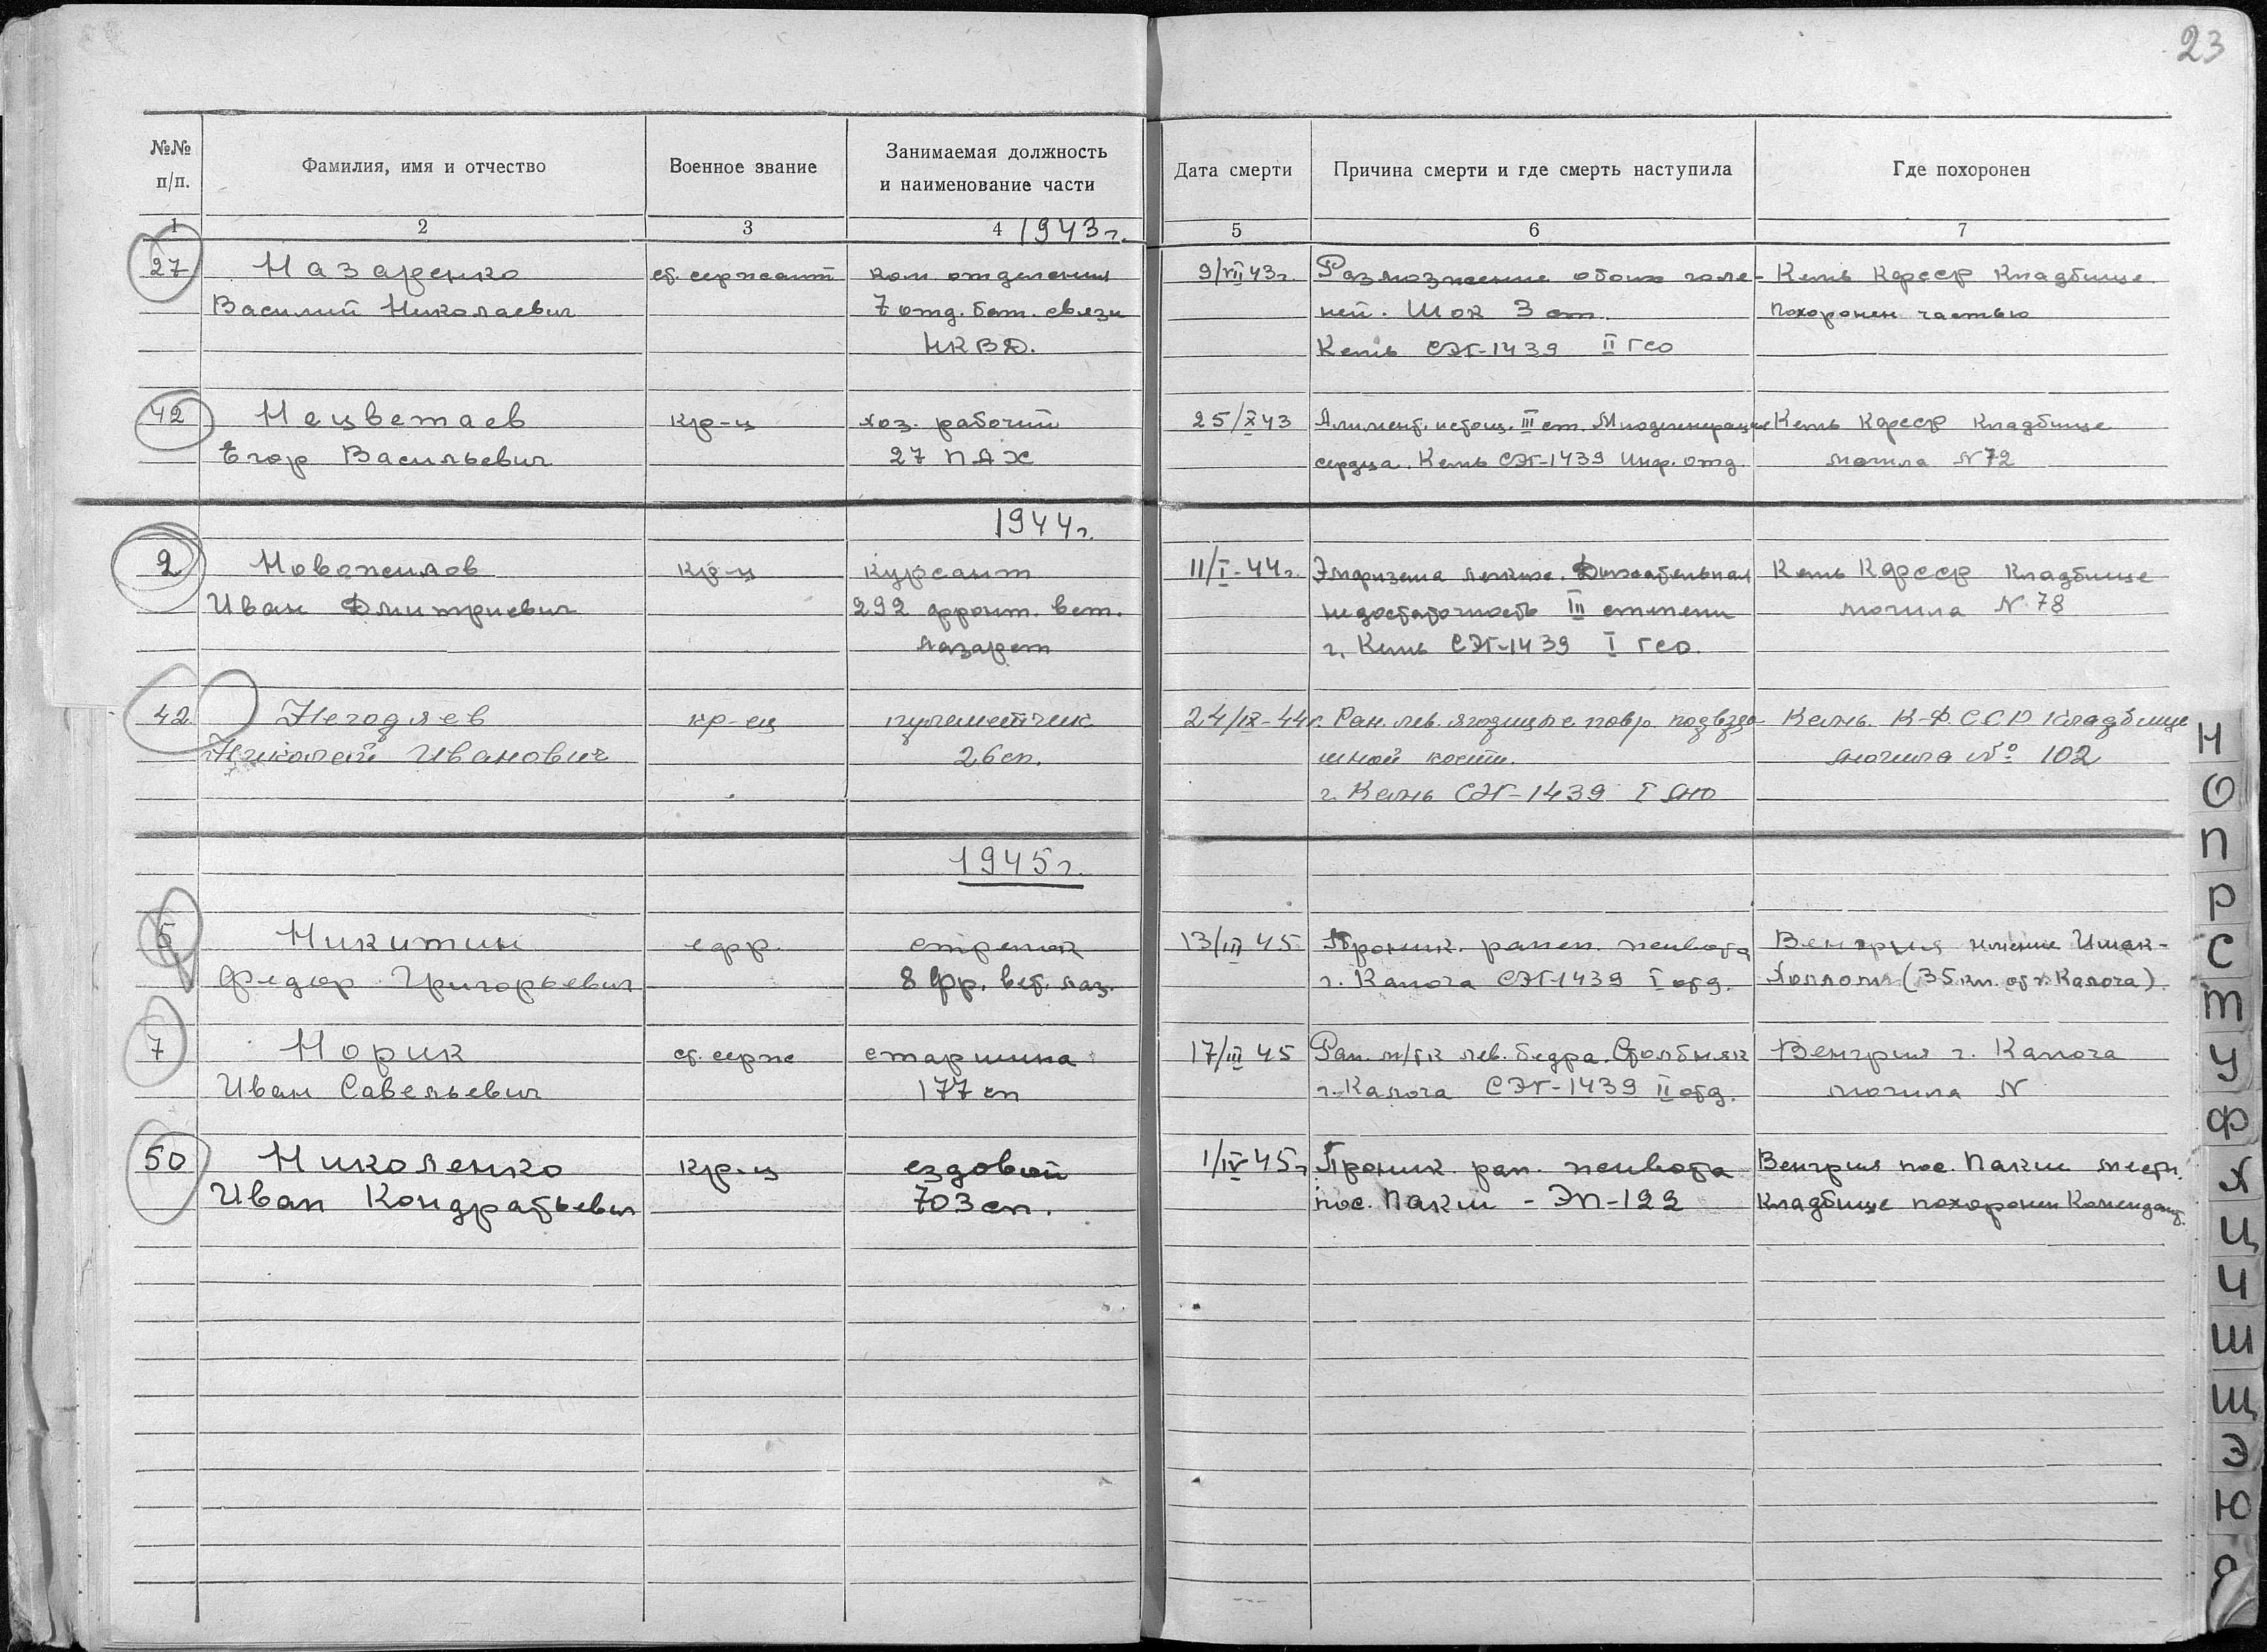 23
№№ п/п. Фамилия, имя и отчество Военное звание Занимаемая должность и наименование части Дата смерти Причина смерти и где смерть наступила Где похоронен
1 2 3 4 1943г. 5 6 7
27 Назаренко ст. сержант ком. отделения 9/VII 43г. Размозжение обоих голе- Кемь КФССР Кладбище
Василий Николаевич 7 отд. бат. связи ней. Шок 3 ст. похоронен частью
НКВД. Кемь СЭГ-1439 II ГСО
42 Нецветаев кр-ц хоз. рабочий 25/X 43 Алимент. истощ. III ст. Миодегенерация Кемь КФССР Кладбище
Егор Васильевич 27 ПАХ сердца. Кемь СЭГ-1439 Инф. отд. могила N 72
1944г.
2 Новожилов кр-ц курсант 11/I-44г. Эмфизема легких. Дыхательная Кемь КФССР Кладбище
Иван Дмитриевич 292 фронт. вет. недостаточность III степени могила N 78
лазарет г. Кемь СЭГ-1439 I ГСО.
42 Негодяев кр-ец пулеметчик 24/IX-44г. Ран. лев. ягодицы с повр. подвздо- Кемь. К-Ф.ССР Кладбище
Николай Иванович 26сп. шной кости. могила № 102
г. Кемь СЭГ-1439 I
1945г.
5 Никитин ефр. стрелок 13/III 45 Проник. ранен. живота Венгрия имение
Федор Григорьевич 8 фр. вет. лаз. г. Калоча СЭГ-1439 I отд. (35 км. от г. Калоча)
7 Норик ст. серж старшина 17/III 45 Ран. м/тк лев. бедра. Столбняк Венгрия г. Калоча
Иван Савельевич 177 сп г. Калоча СЭГ-1439 II отд. могила N
50 Николенко кр-ц ездовой 1/IV 45г Проник. ран. живота Венгрия пос. Пакш местн.
Иван Кондратьевич 703 сп. пос. Пакш - ЭП-122 Кладбище похоронен Комендант.
Н
О
П
Р
С
Т
У
Ф
Х
Ц
Ч
Ш
Щ
Э
Ю
Я